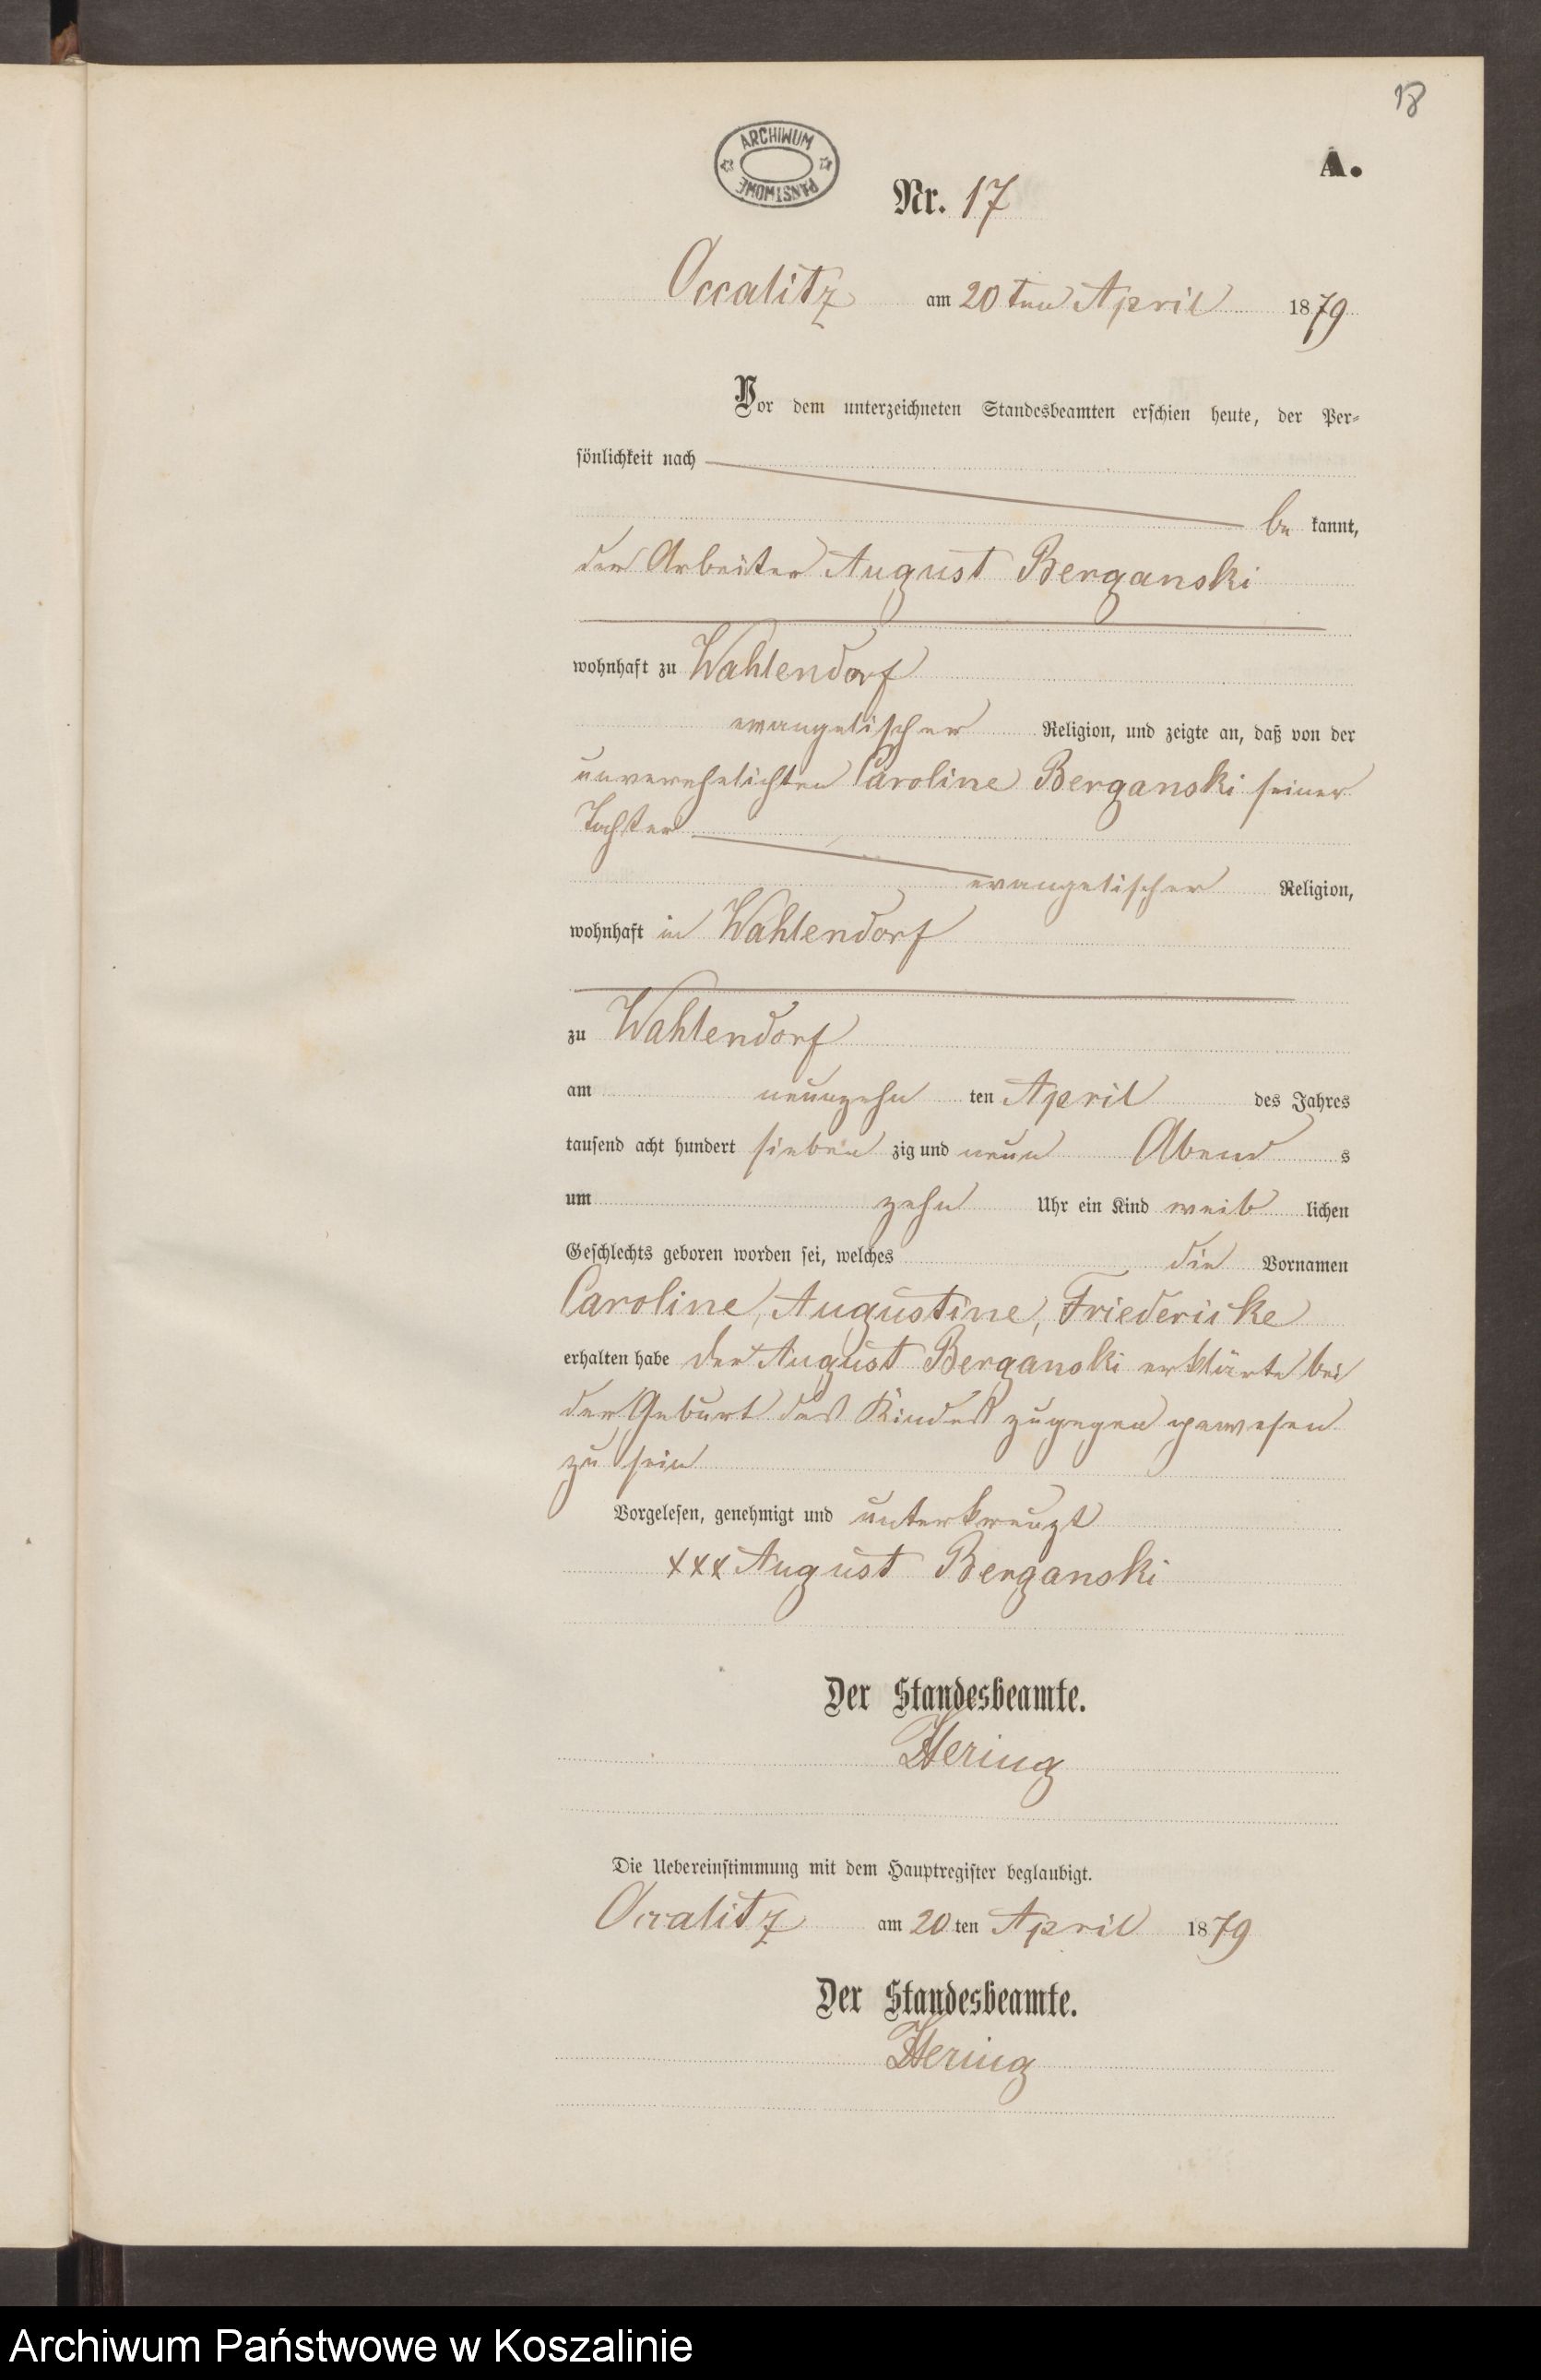 18
ARCHIWUM
PAŃSTWOWE
A.
Nr. 17
Occalitz am 20 ten April 1879
Vor dem unterzeichneten Standesbeamten erschien heute, der Per=
sönlichkeit nach
be kannt,
der Arbeiter August Berganski
wohnhaft zu Wahlendorf
evangelischer Religion, und zeigte an, daß von der
unverehelichten Caroline Berganski seiner
Tochter
evangelischer Religion,
wohnhaft in Wahlendorf
zu Wahlendorf
am neunzehn ten April des Jahres
tausend acht hundert sieben zig und neun Abend s
um zehn Uhr ein Kind weib lichen
Geschlechts geboren worden sei, welches die Vornamen
Caroline, Augustine, Friedericke
erhalten habe der August Berganski erklärte bei
der Geburt des Kindes zugegen gewesen
zu sein
Vorgelesen, genehmigt und unterkreuzt
xxx August Berganski
Der Standesbeamte.
Hering
Die Uebereinstimmung mit dem Hauptregister beglaubigt.
Occalitz am 20 ten April 1879
Der Standesbeamte.
Hering
Archiwum Państwowe w Koszalinie